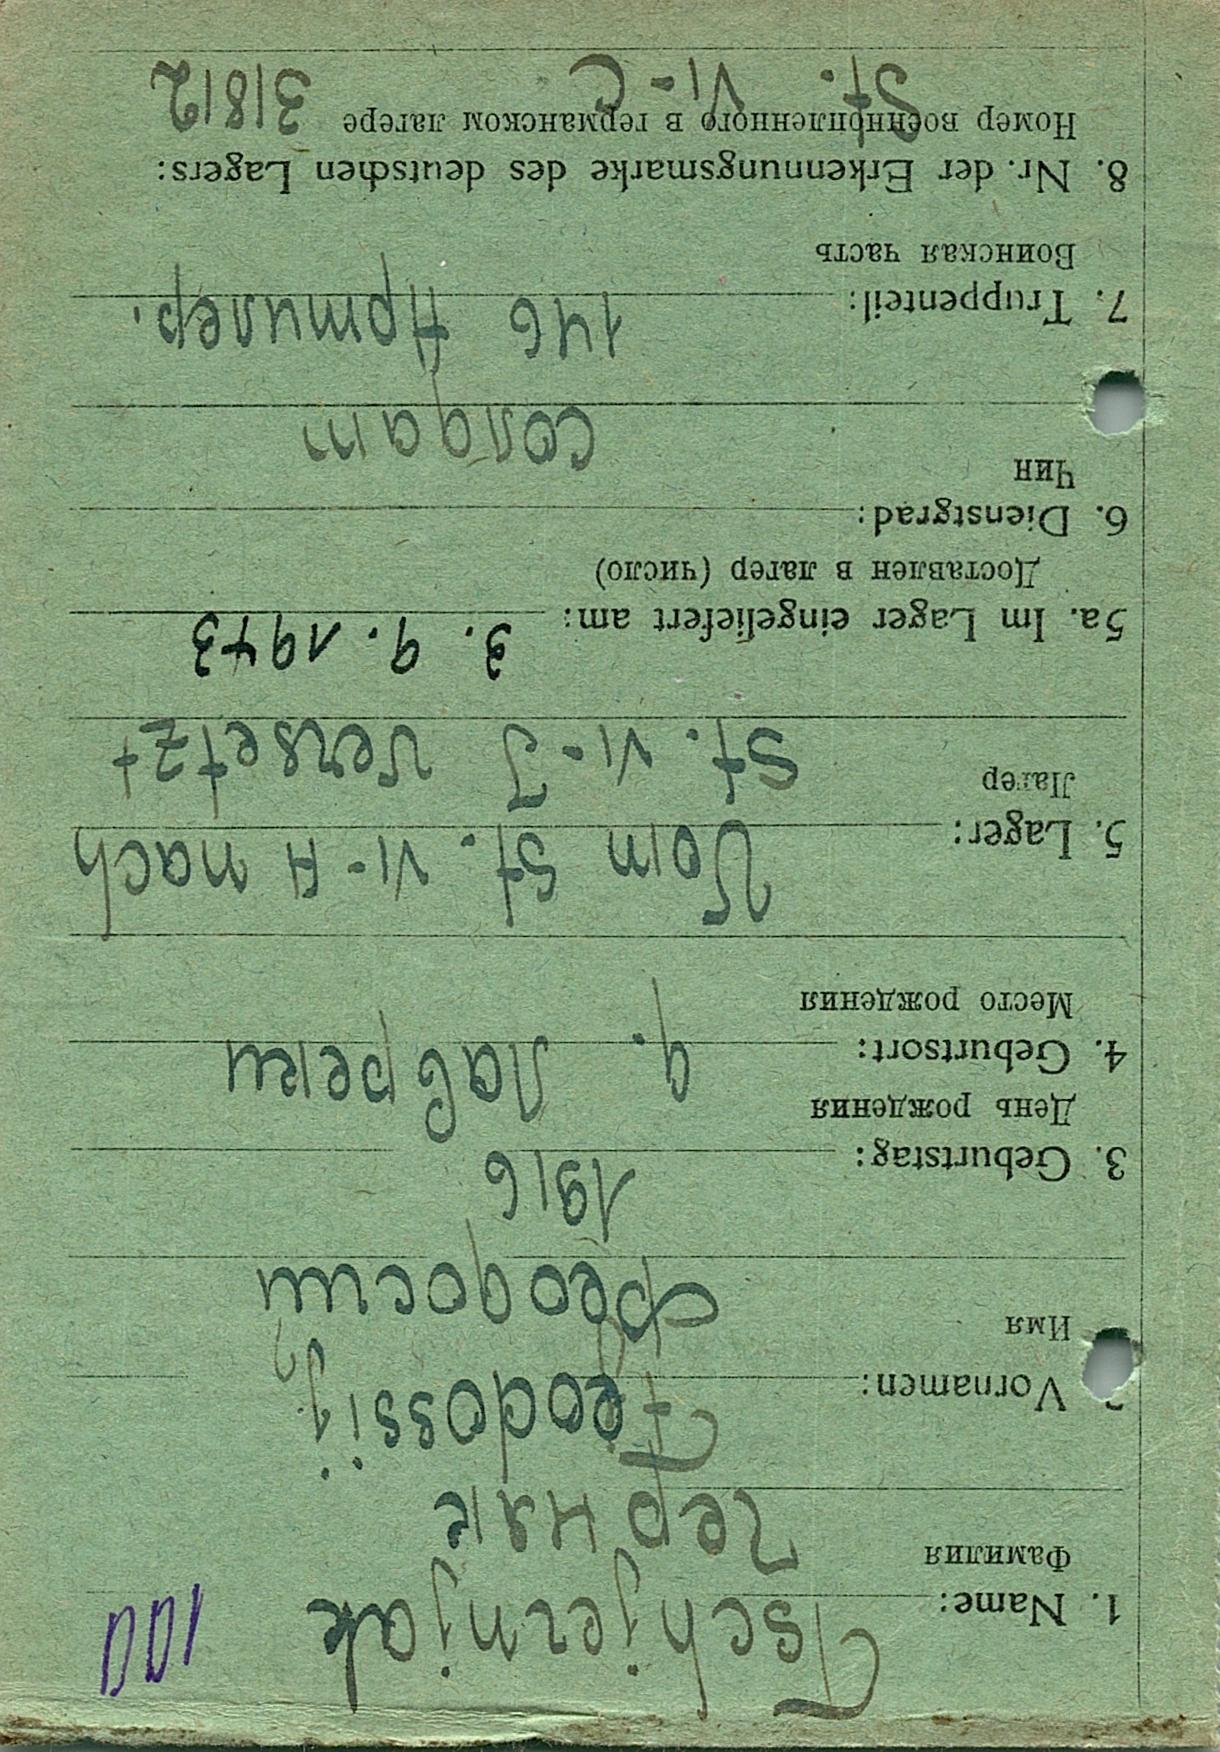 100
1. Name: Tschjernjak
Фамилия Черняк
2. Vornamen: Feodossij
Имя Феодосии
3. Geburtstag: 1916
День рождения
4. Geburtsort: д. Лавреки
Место рождения
5. Lager: Vom St. VI-A nach
Лагер St. VI-J versetzt
5a. Im Lager eingeliefert am: 3. 9. 1943
Доставлен в лагер (число)
6. Dienstgrad:
Чин солдат
7. Truppenteil: 146 Артилер.
Воинская часть
8. Nr. der Erkennungsmarke des deutschen Lagers:
Номер военнпленного в германском лагере 31812
St. VI-C